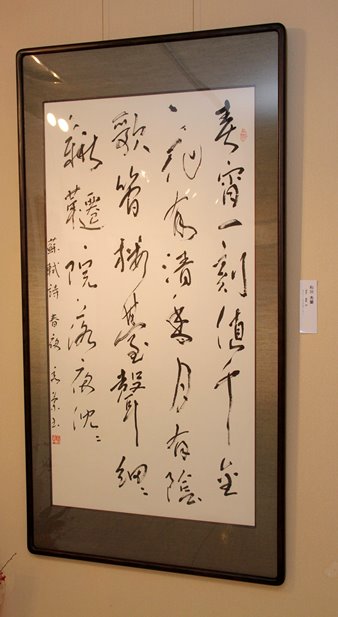 春宵一刻値千金
花有清香月有陰
歌管楼臺聲細〻
鞦韆院落夜沈〻
蘇軾詩 春夜